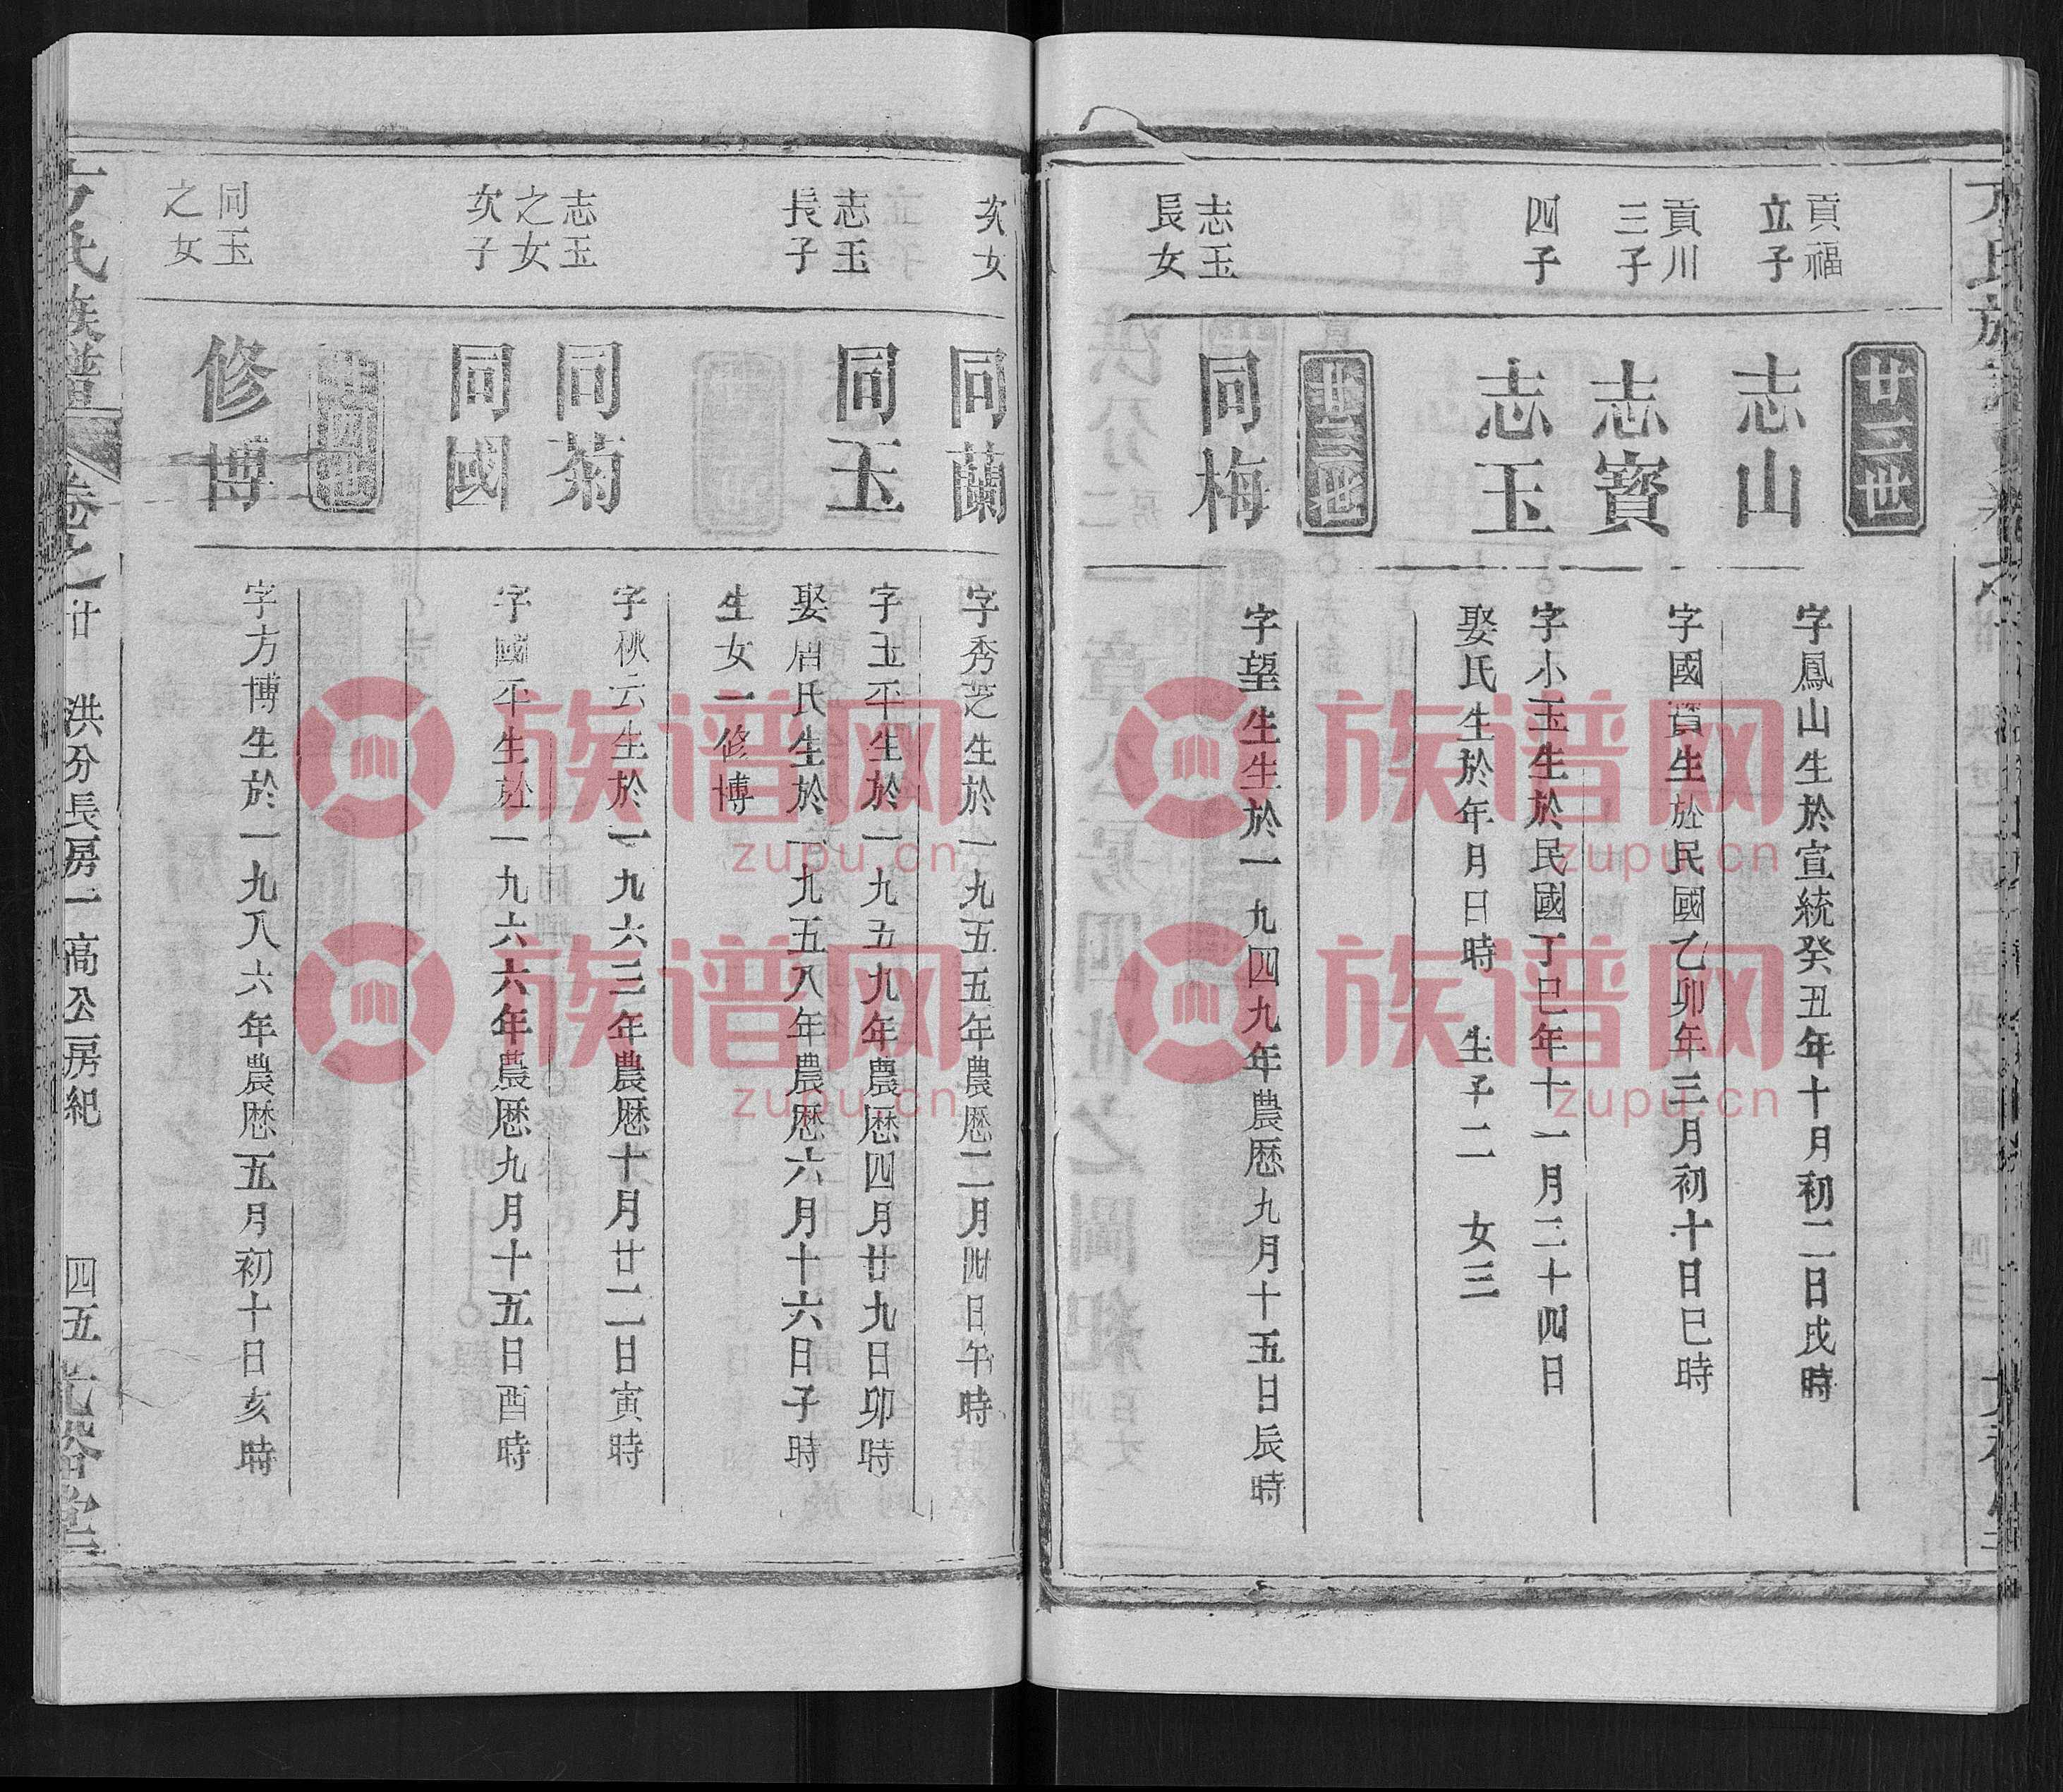 廿二世
貢福
立子
志山
字鳳山生於宣統癸丑年十月初二日戌時
貢川
三子
志寶
字國寶生於民國乙卯年三月初十日巳時
四子
志玉
字小玉生於民國丁巳年十一月二十四日
娶氏生於年月日時 生子二 女三
廿三世
志玉
長女
同梅
字望生生於一九四九年農歷九月十五日辰時
次女
同蘭
字秀芝生於一九五五年農歷二月四日午時
志玉
長子
同玉
字玉平生於一九五九年農歷四月廿九日卯時
娶唐氏生於一九五八年農歷六月十六日子時
生女一修博
志玉
之女
同菊
字秋云生於一九六三年農歷十月廿二日寅時
次子
同國
字國平生於一九六六年農歷九月十五日酉時
廿四世
同玉
之女
修博
字方博生於一九八六年農歷五月初十日亥時
方氏族譜 卷之廿 洪分長房一高公房紀 四五
族谱网
zupu.cn
族谱网
zupu.cn
族谱网
zupu.cn
族谱网
zupu.cn